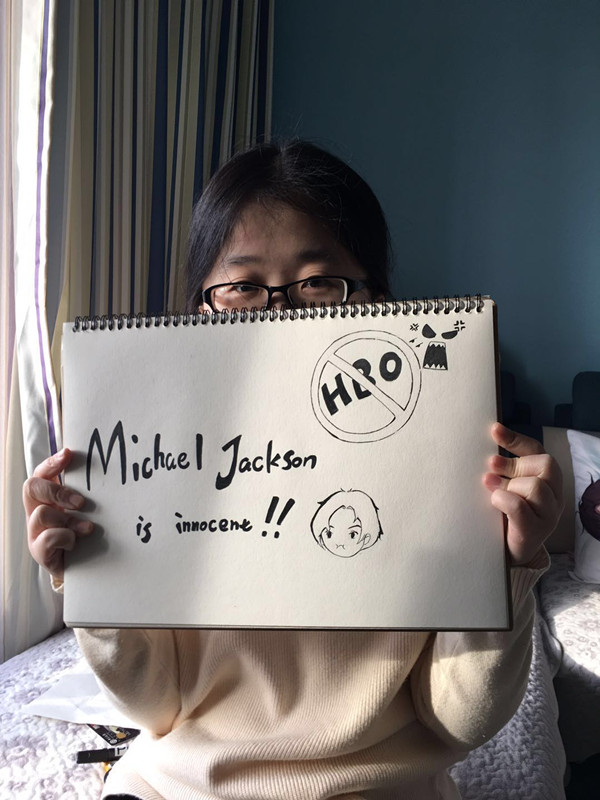 HBO
Michael Jackson
is innocent!!